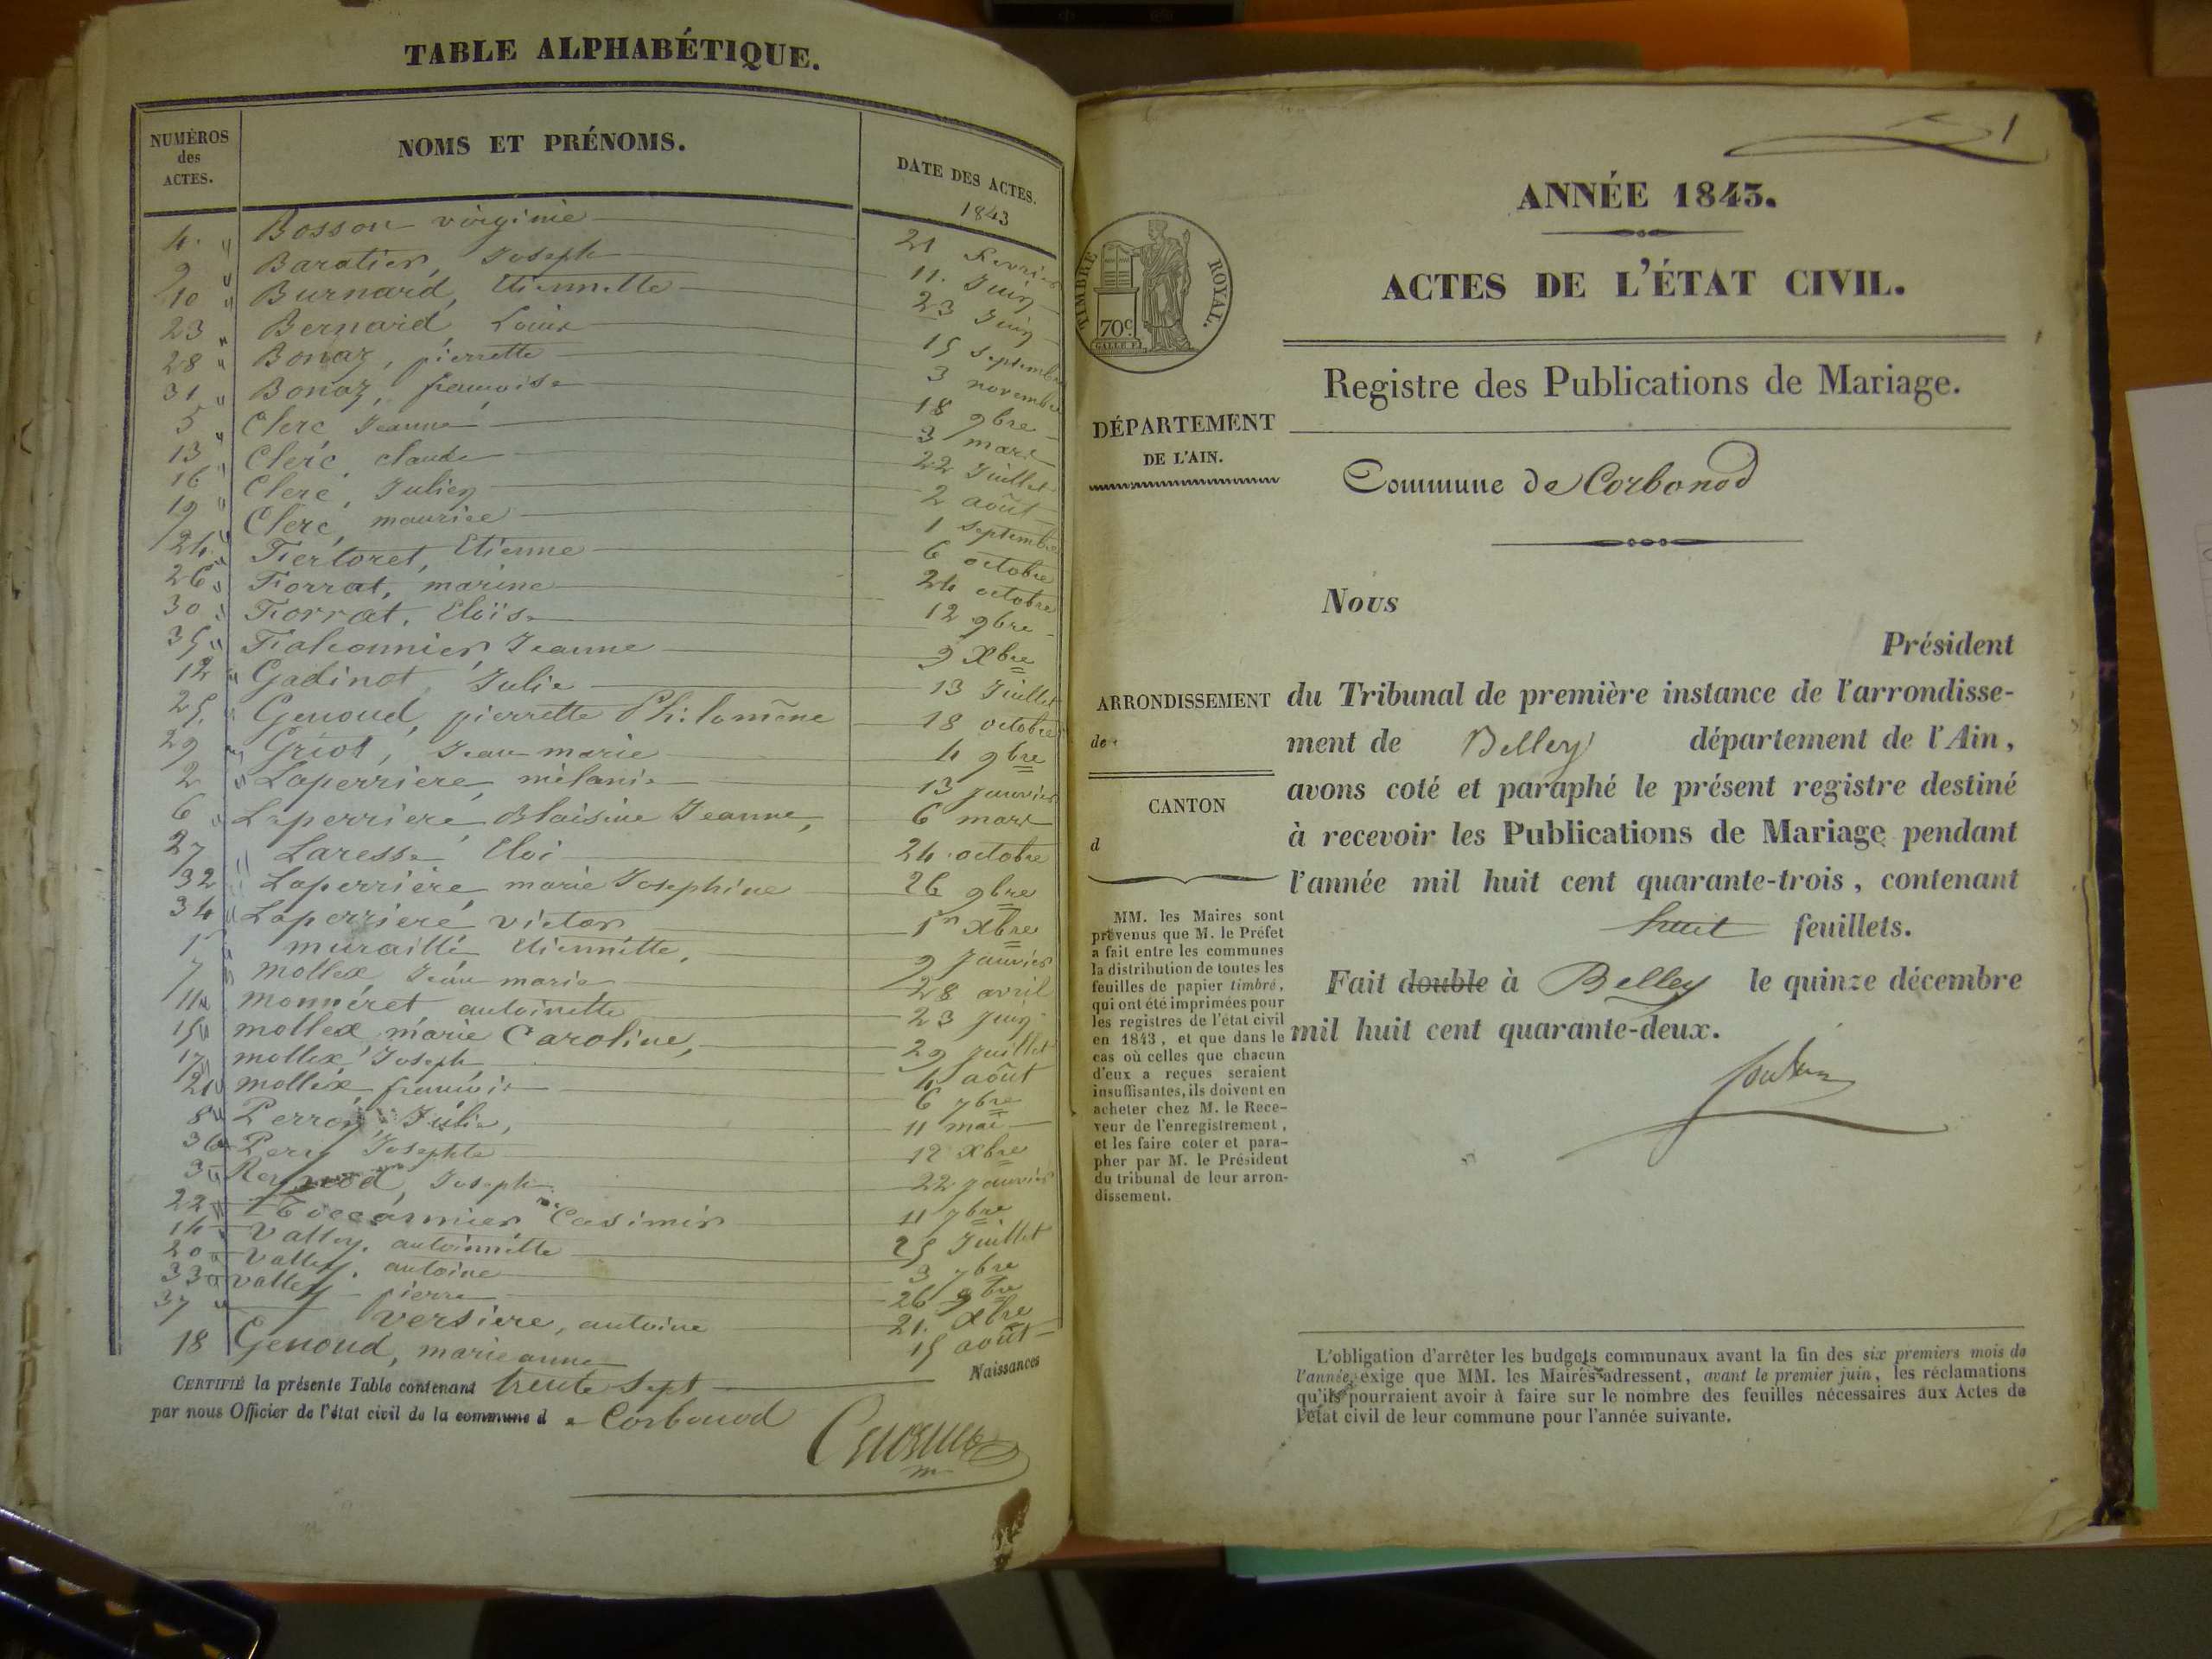 TABLE ALPHABÉTIQUE.
NUMÉROS des ACTES.
NOMS ET PRÉNOMS.
DATE DES ACTES.
1843
4 " Bosson virginie 21 fevrier
9 " Baratier, Joseph 11. Juin
10 " Burnard, Etiennette 23 Juin
23 " Bernard, Louis 15 septembre
28 " Bonaz, pierrette 3 novembre
31 " Bonaz, françoise 18 9bre
5 " Clerc Jeanne 3 mars
13 " Clerc, claude 22 Juillet
16 " Clerc, Julien 2 août
19 " Clerc, maurice 1 septembre
24 " Fiertoret, Etienne 6 octobre
26 " Forrat, marine 24 octobre
30 " Forrat, Eloïse 12 9bre
35 " Falconnier, Jeanne 9 Xbre
12 " Gadinot, Julie 13 Juillet
25 " Genoud, pierrette Philomène 18 octobre
29 " Griot, Jean marie 4 9bre
2 " Laperriere, mélanie 13 Janvier
6 " Laperriere, Blaisine Jeanne, 6 mars
27 " Laresse, Eloi 24 octobre
32 " Laperrière, marie Josephine 26 9bre
34 " Laperriere, victor 1er Xbre
1 " muraille Etiennette, 9 Janvier
7 " mollex, Jean marie 28 avril
11 " monneret, antoinette 23 Juin
15 " mollex, marie Caroline, 29 Juillet
17 " mollex, Joseph 4 août
21 " mollex, françois 6 7bre
8 " Perron, Julie, 11 mai
36 " Pery Josephte 12 Xbre
3 " Reynaud, Joseph 22 Janvier
22 " Toccannier Casimir 11 7bre
14 " Valley, antoinnette 25 Juillet
20 " Valley, antoine 3 7bre
33 " Valley, pierre 26 9bre
37 " Versiere, antoine 21. Xbre
18 Genoud, marie anne 15 août
CERTIFIÉ la présente Table contenant trente sept Naissances
par nous Officier de l'état civil de la commune de Corbonod
1
ANNÉE 1843.
TIMBRE ROYAL.
70c
ACTES DE L'ÉTAT CIVIL.
Registre des Publications de Mariage.
DÉPARTEMENT
DE L'AIN.
Commune de Corbonod
Nous
Président
ARRONDISSEMENT
de
du Tribunal de première instance de l'arrondisse-
ment de Belley département de l'Ain,
avons coté et paraphé le présent registre destiné
CANTON
d
à recevoir les Publications de Mariage pendant
l'année mil huit cent quarante-trois, contenant
huit feuillets.
Fait double à Belley le quinze décembre
mil huit cent quarante-deux.
MM. les Maires sont
prévenus que M. le Préfet
a fait entre les communes
la distribution de toutes les
feuilles de papier timbré,
qui ont été imprimées pour
les registres de l'état civil
en 1843, et que dans le
cas où celles que chacun
d'eux a reçues seraient
insuffisantes, ils doivent en
acheter chez M. le Rece-
veur de l'enregistrement,
et les faire coter et para-
pher par M. le Président
du tribunal de leur arron-
dissement.
L'obligation d'arrêter les budgets communaux avant la fin des six premiers mois de
l'année, exige que MM. les Maires adressent, avant le premier juin, les réclamations
qu'ils pourraient avoir à faire sur le nombre des feuilles nécessaires aux Actes de
l'état civil de leur commune pour l'année suivante.